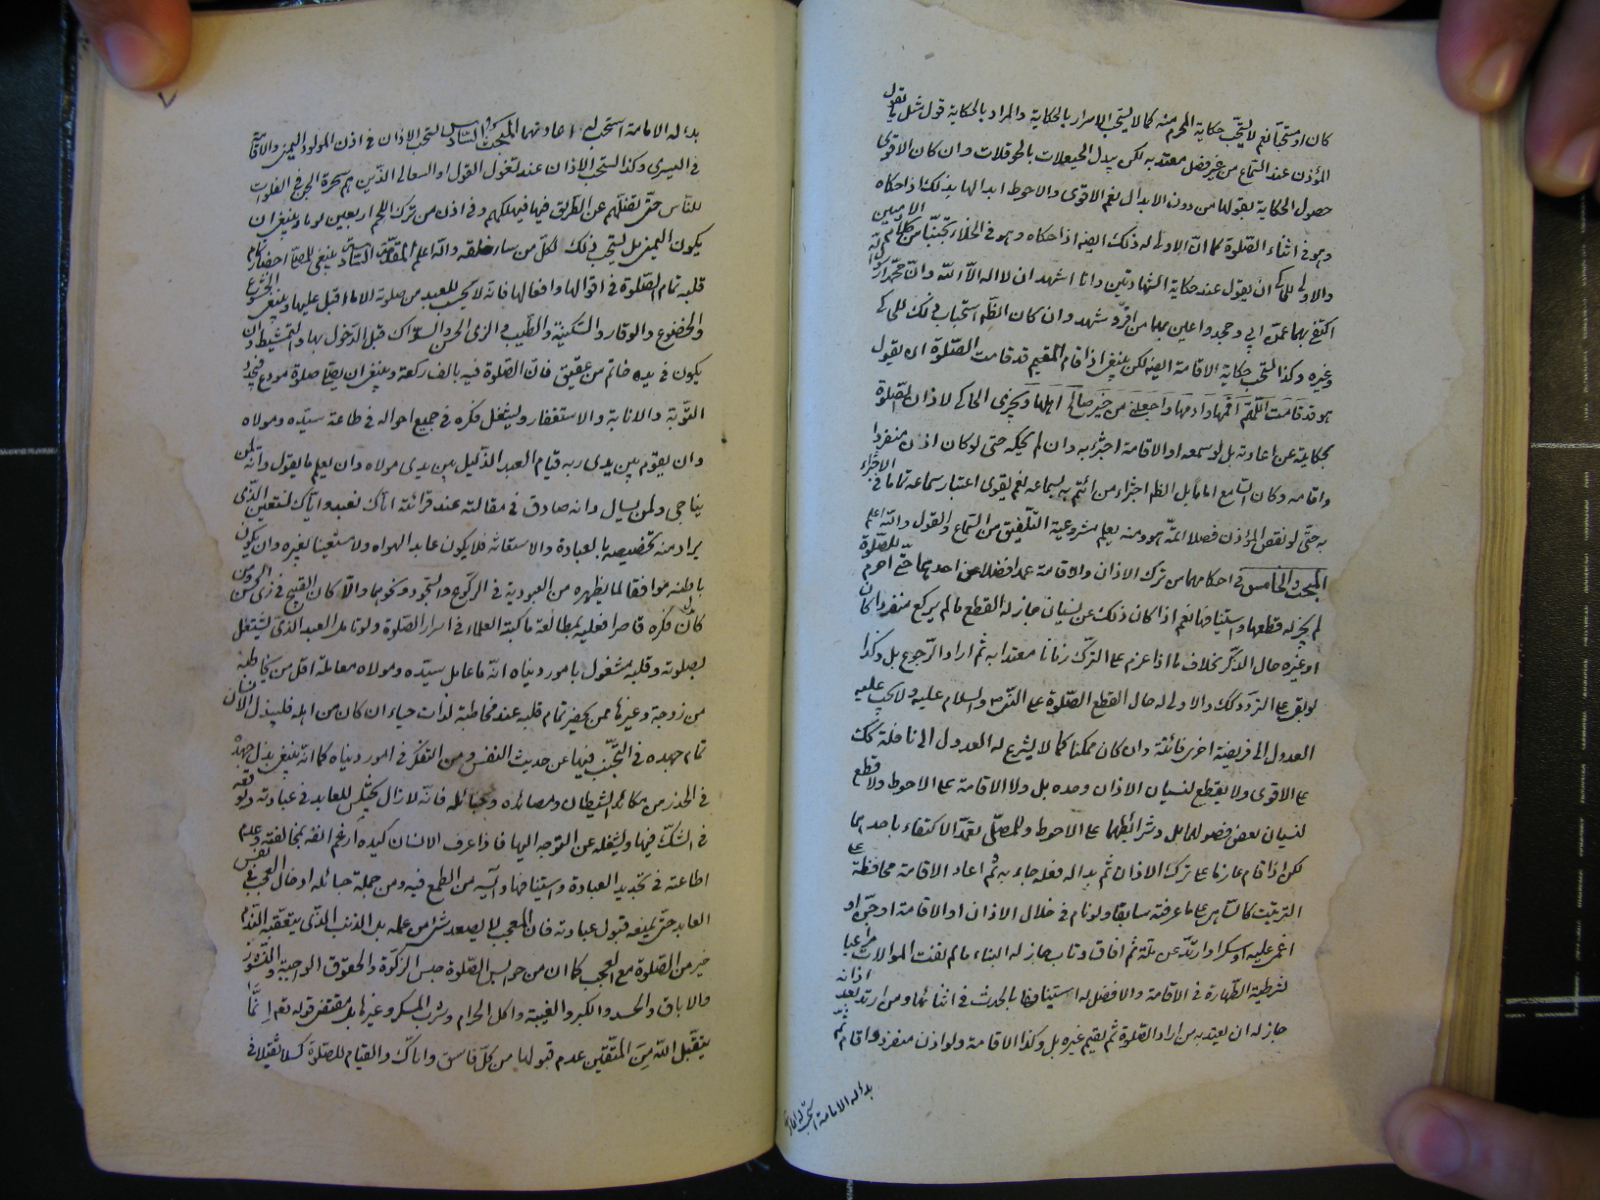 كان او مستحبا نعم لا يستحب حكاية المحرم منه كما لا يستحب الاسرار بالحكاية والمراد بالحكاية قول مثل ما يقول
المؤذن عند السماع من غير فصل معتد به لكن يبدل الحيعلات بالحوقلات وان كان الاقوى
حصول الحكاية بقولها من دون الابدال نعم الاقوى والاحوط ابدالها بذلك اذا حكاه
وهو في اثناء الصلوة كما ان الاولى له ذلك ايضا اذا حكاه وهو في الخلاء تجنبا من كلام الادميين
والاولى للحاكي ان يقول عند حكاية الشهادتين وانا اشهد ان لا اله الا الله وان محمدا رسول الله
اكتفي بهما عمن ابى وجحد واعين بهما من اقر وشهد وان كان الظاهر استحباب ذلك للحاكي
وغيره وكذا يستحب حكاية الاقامة ايضا لكن ينبغي اذا قام المقيم قد قامت الصلوة ان يقول
هو قد قامت اللهم اقمها وادمها واجعلني من خير صالحي اهلها ويجزى الحاكي لاذان الصلوة
بحكايته عن اعادته بل لو سمعه او الاقامة اجتزء به وان لم يحكه حتى لو كان اذن منفردا
واقامه وكان السامع اماما بل الظاهر اجتزاء من ائتم به بسماعه نعم يقوى اعتبار سماعه تاما في الاجتزاء
به حتى لو نقص المؤذن فصلا اتمه هو ومنه يعلم مشروعية التلفيق من السماع والقول والله اعلم
المبحث الخامس في احكامهما من ترك الاذان والاقامة عمدا فضلا عن احدهما حتى احرم للصلوة
لم يجز له قطعها واستينافها نعم اذا كان ذلك عن نسيان جاز له القطع ما لم يركع منفردا كان
او غيره حال الذكر بخلاف ما اذا عزم على الترك زمانا معتدا به ثم اراد الرجوع بل وكذا
لو بقى على التردد كك والاولى له حال القطع الصلوة على النبي ص والسلام عليه ولا يجب عليه
العدول الى فريضة اخرى فائتة وان كان ممكنا كما لا يشرع له العدول الى نافلة كك
على الاقوى ولا يقطع لنسيان الاذان وحده بل ولا الاقامة على الاحوط ولا قطع
لنسيان بعض فصولهما بل وشرائطهما على الاحوط وللمصلى تعمد الاكتفاء باحدهما
لكن اذا قام عازما على ترك الاذان ثم بدا له فعله جاء به ثم اعاد الاقامة محافظة على
الترتيب كالساهي على ما عرفته سابقا ولو نام في خلال الاذان او الاقامة او جن او
اغمى عليه او سكر او ارتد عن ملة ثم افاق وتاب جاز له البناء ما لم تفت الموالات مراعيا
لشرطية الطهارة في الاقامة والافضل له استينافها بالحدث في اثنائها ومن ارتد بعد اذانه
جاز له ان يعتد به من اراد الصلوة ثم يقيم غيره بل وكذا الاقامة ولو اذن منفردا واقام ثم
بدا له الامامة استحب له اعادتهما
بدا له الامامة استحب له اعادتهما المبحث السادس يستحب الاذان في اذن المولود اليمنى والاقامة
في اليسرى وكذا يستحب الاذان عند تغول الغول او السعالى الذين هم سحرة الجن في الفلوات
للناس حتى تضلهم عن الطريق فيها فيهلكهم وفي اذن من ترك اللحم اربعين يوما وينبغي ان
يكون اليمنى بل يستحب ذلك لكل من ساء خلقه والله اعلم المقصد السادس ينبغي للمصلى احضار
قلبه تمام الصلوة في اقوالها وافعالها فانه لا يحسب للعبد من صلوته الا ما اقبل عليها وينبغي الخشوع
والخضوع والوقار والسكينة والطيب في الزى الحسن والسواك قبل الدخول بها والتمشيط وان
يكون في يده خاتم من عقيق فان الصلوة فيه بالف ركعة وينبغي ان يصلى صلوة مودع فيجدد
التوبة والانابة والاستغفار ويشغل فكره في جميع احواله في طاعة سيده ومولاه
وان يقوم بين يدى ربه قيام العبد الذليل بين يدى مولاه وان يعلم ما يقول وانه لمن
يناجى ولمن يسال وانه صادق في مقالته عند قرائته اياك نعبد واياك نستعين الذى
يراد منه تخصيصه بالعبادة والاستعانة فلا يكون عابدا لهواه ولا مستعينا بغيره وان يكون
باطنه موافقا لما يظهره من العبودية في الركوع والسجود ونحوهما والا كان القبيح في زى الحسن ومن
كان فكره قاصرا فعليه بمطالعة ما كتبه العلماء في اسرار الصلوة ولو تامل العبد الذى يشتغل
بصلوته وقلبه مشغول بامور دنياه انه ما عامل سيده ومولاه معاملة اقل من يخاطبه
من زوجة وغيرها ممن يحضر تمام قلبه عند مخاطبته لذات حياء ان كان من اهله فليبذل الانسان
تمام جهده في التجنب فيها عن حديث النفس ومن التفكر في امور دنياه كما انه ينبغي بذل جهده
في الحذر من مكائد الشيطان ومصائده وحبائله فانه لا زال يختلس للعابد في عبادته وتوقعه
في الشك فيها ويشغله عن التوجه اليها فاذا عرف الانسان كيده ارغم انفه بمخالفته وعدم
اطاعته في تجديد العبادة واستينافها وآيسه من الطمع فيه ومن جملة حبائله ادخال العجب في نفس
العابد حتى يمنعه قبول عبادته فان المعجب لا يصعد شئ من عمله بل الذنب الذى يتعقبه الندم
خير من الصلوة مع العجب كما ان من حوابس الصلوة حبس الزكوة والحقوق الواجبة والنشوز
والاباق والحسد والكبر والغيبة واكل الحرام وشرب المسكر وغيرها بل مقتضى قوله تعم انما
يتقبل الله من المتقين عدم قبولها من كل فاسق واياك والقيام للصلوة كسلا ثقيلا في